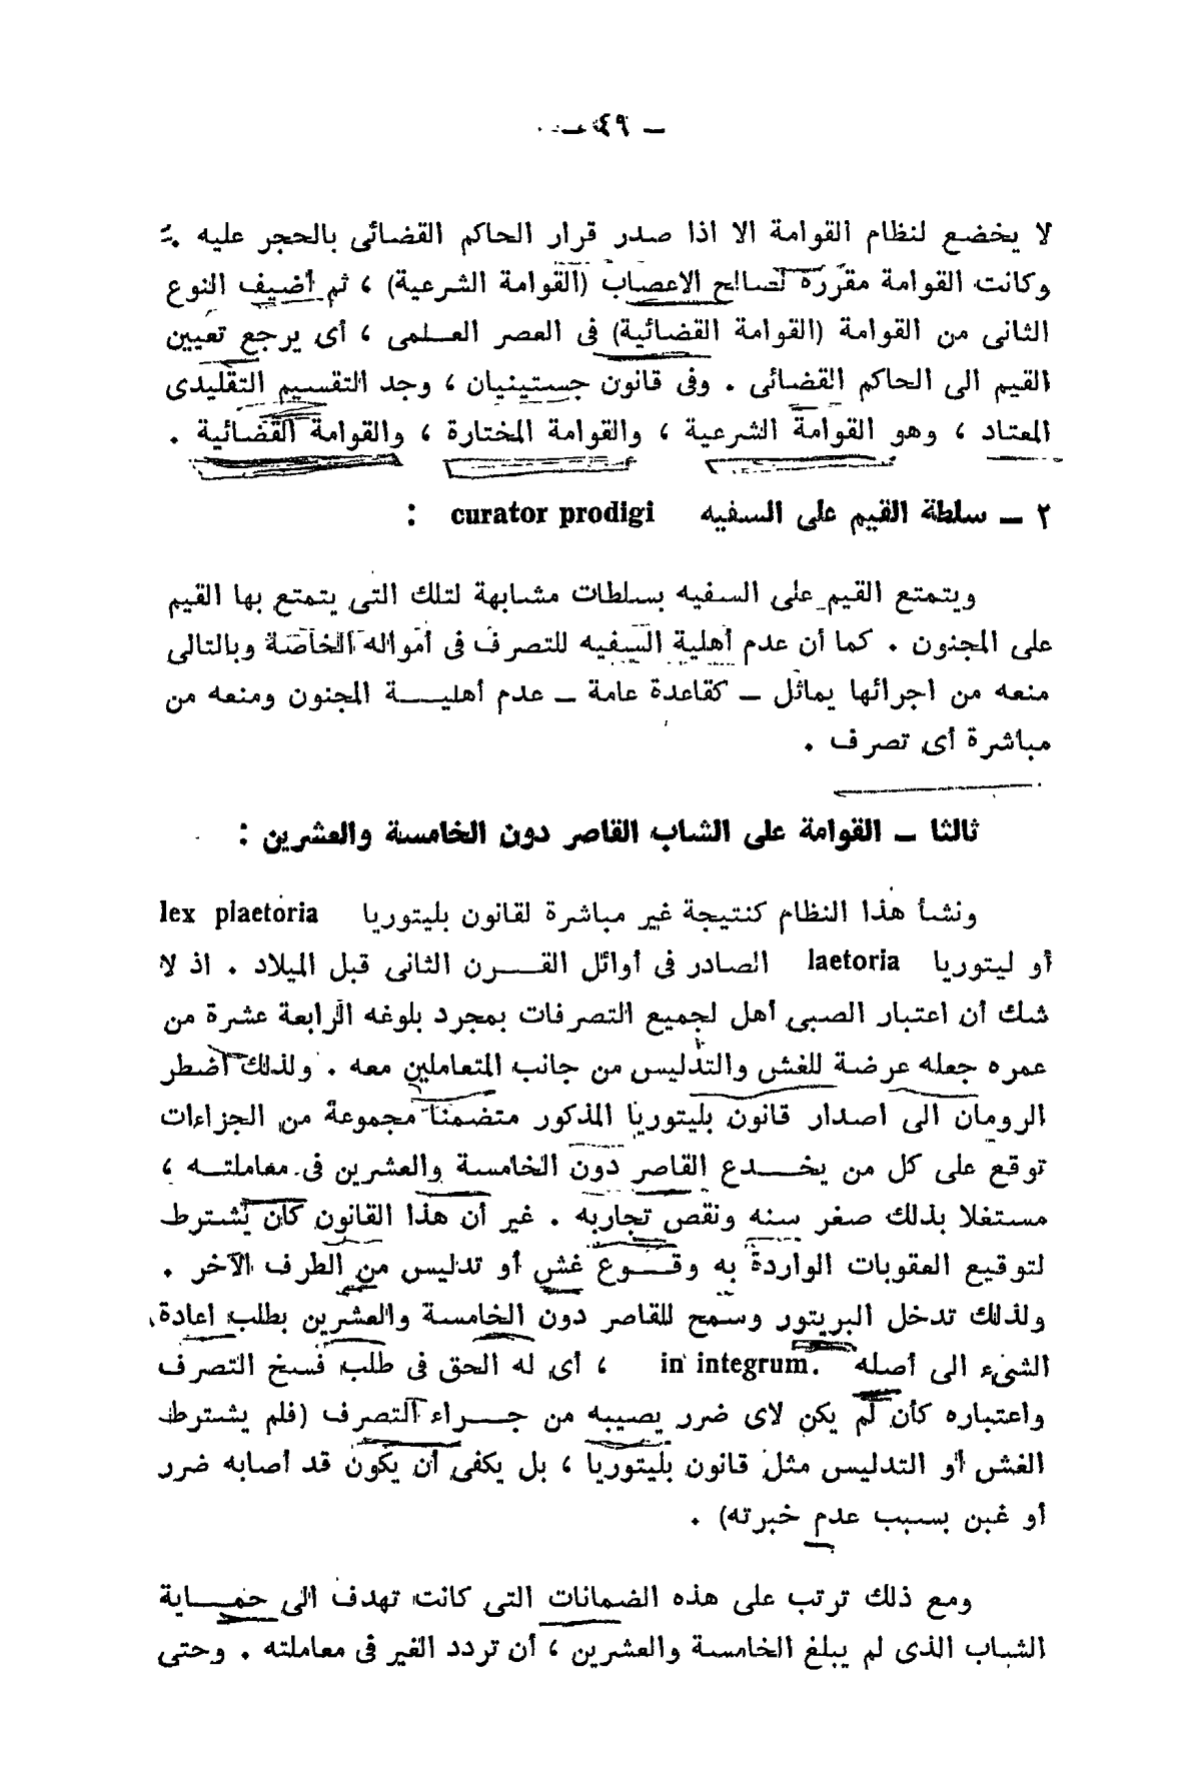 — ٤٩ —
لا يخضع لنظام القوامة الا اذا صدر قرار الحاكم القضائى بالحجر عليه .
وكانت القوامة مقررة لصالح الاعصاب (القوامة الشرعية) ، ثم أضيف النوع
الثانى من القوامة (القوامة القضائية) فى العصر العلمى ، أى يرجع تعيين
القيم الى الحاكم القضائى . وفى قانون جستينيان ، وجد التقسيم التقليدى
المعتاد ، وهو القوامة الشرعية ، والقوامة المختارة ، والقوامة القضائية .
٢ — سلطة القيم على السفيه curator prodigi :
ويتمتع القيم على السفيه بسلطات مشابهة لتلك التى يتمتع بها القيم
على المجنون . كما أن عدم أهلية السفيه للتصرف فى أمواله الخاصة وبالتالى
منعه من اجرائها يماثل — كقاعدة عامة — عدم أهلية المجنون ومنعه من
مباشرة أى تصرف .
ثالثا — القوامة على الشاب القاصر دون الخامسة والعشرين :
ونشأ هذا النظام كنتيجة غير مباشرة لقانون بليتوريا lex plaetoria
أو ليتوريا laetoria الصادر فى أوائل القرن الثانى قبل الميلاد . اذ لا
شك أن اعتبار الصبى أهل لجميع التصرفات بمجرد بلوغه الرابعة عشرة من
عمره جعله عرضة للغش والتدليس من جانب المتعاملين معه . ولذلك اضطر
الرومان الى اصدار قانون بليتوريا المذكور متضمنا مجموعة من الجزاءات
توقع على كل من يخدع القاصر دون الخامسة والعشرين فى معاملته ،
مستغلا بذلك صغر سنه ونقص تجاربه . غير أن هذا القانون كان يشترط
لتوقيع العقوبات الواردة به وقوع غش أو تدليس من الطرف الآخر .
ولذلك تدخل البريتور وسمح للقاصر دون الخامسة والعشرين بطلب اعادة
الشىء الى أصله in integrum. ، أى له الحق فى طلب فسخ التصرف
واعتباره كأن لم يكن لاى ضرر يصيبه من جراء التصرف (فلم يشترط
الغش أو التدليس مثل قانون بليتوريا ، بل يكفى أن يكون قد أصابه ضرر
أو غبن بسبب عدم خبرته) .
ومع ذلك ترتب على هذه الضمانات التى كانت تهدف الى حماية
الشباب الذى لم يبلغ الخامسة والعشرين ، أن تردد الغير فى معاملته . وحتى